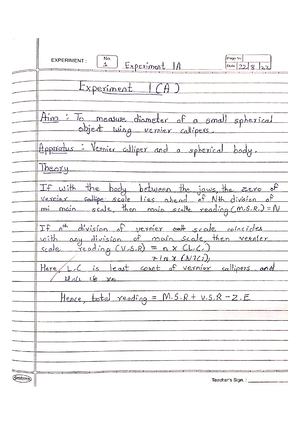 EXPERIMENT : No. 1 Experiment 1A Page No.
Date 22/8/22
Experiment 1(A)
Aim : To measure diameter of a small spherical
object using vernier callipers.
Apparatus : Vernier calliper and a spherical body.
Theory
If with the body between the jaws, the zero of
vernier scale lies ahead of Nth division of
main scale, then main scale reading (M.S.R.) = N
If nth division of vernier scale coincides
with any division of main scale, then vernier
scale reading (V.S.R) = n x (L.C.)
Here, L.C is least count of vernier callipers and
Hence, total reading = M.S.R + V.S.R - Z.E
Teacher's Sign. :